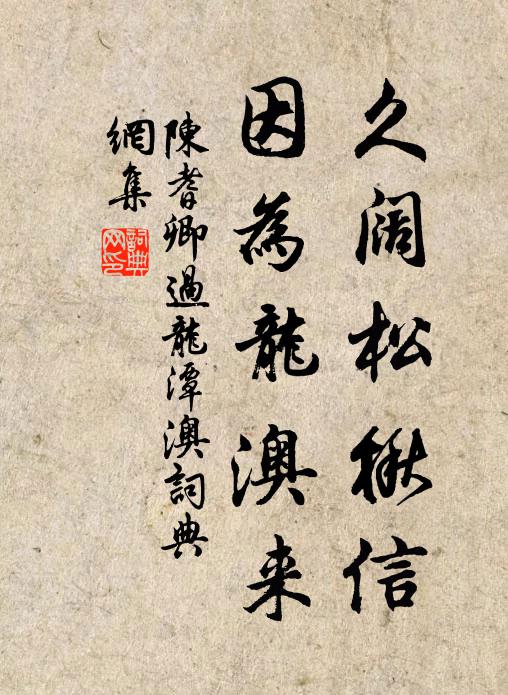 久阔松楸信
因為龍澳来
陳耆卿過龍潭澳詞典
網集
詞典網印